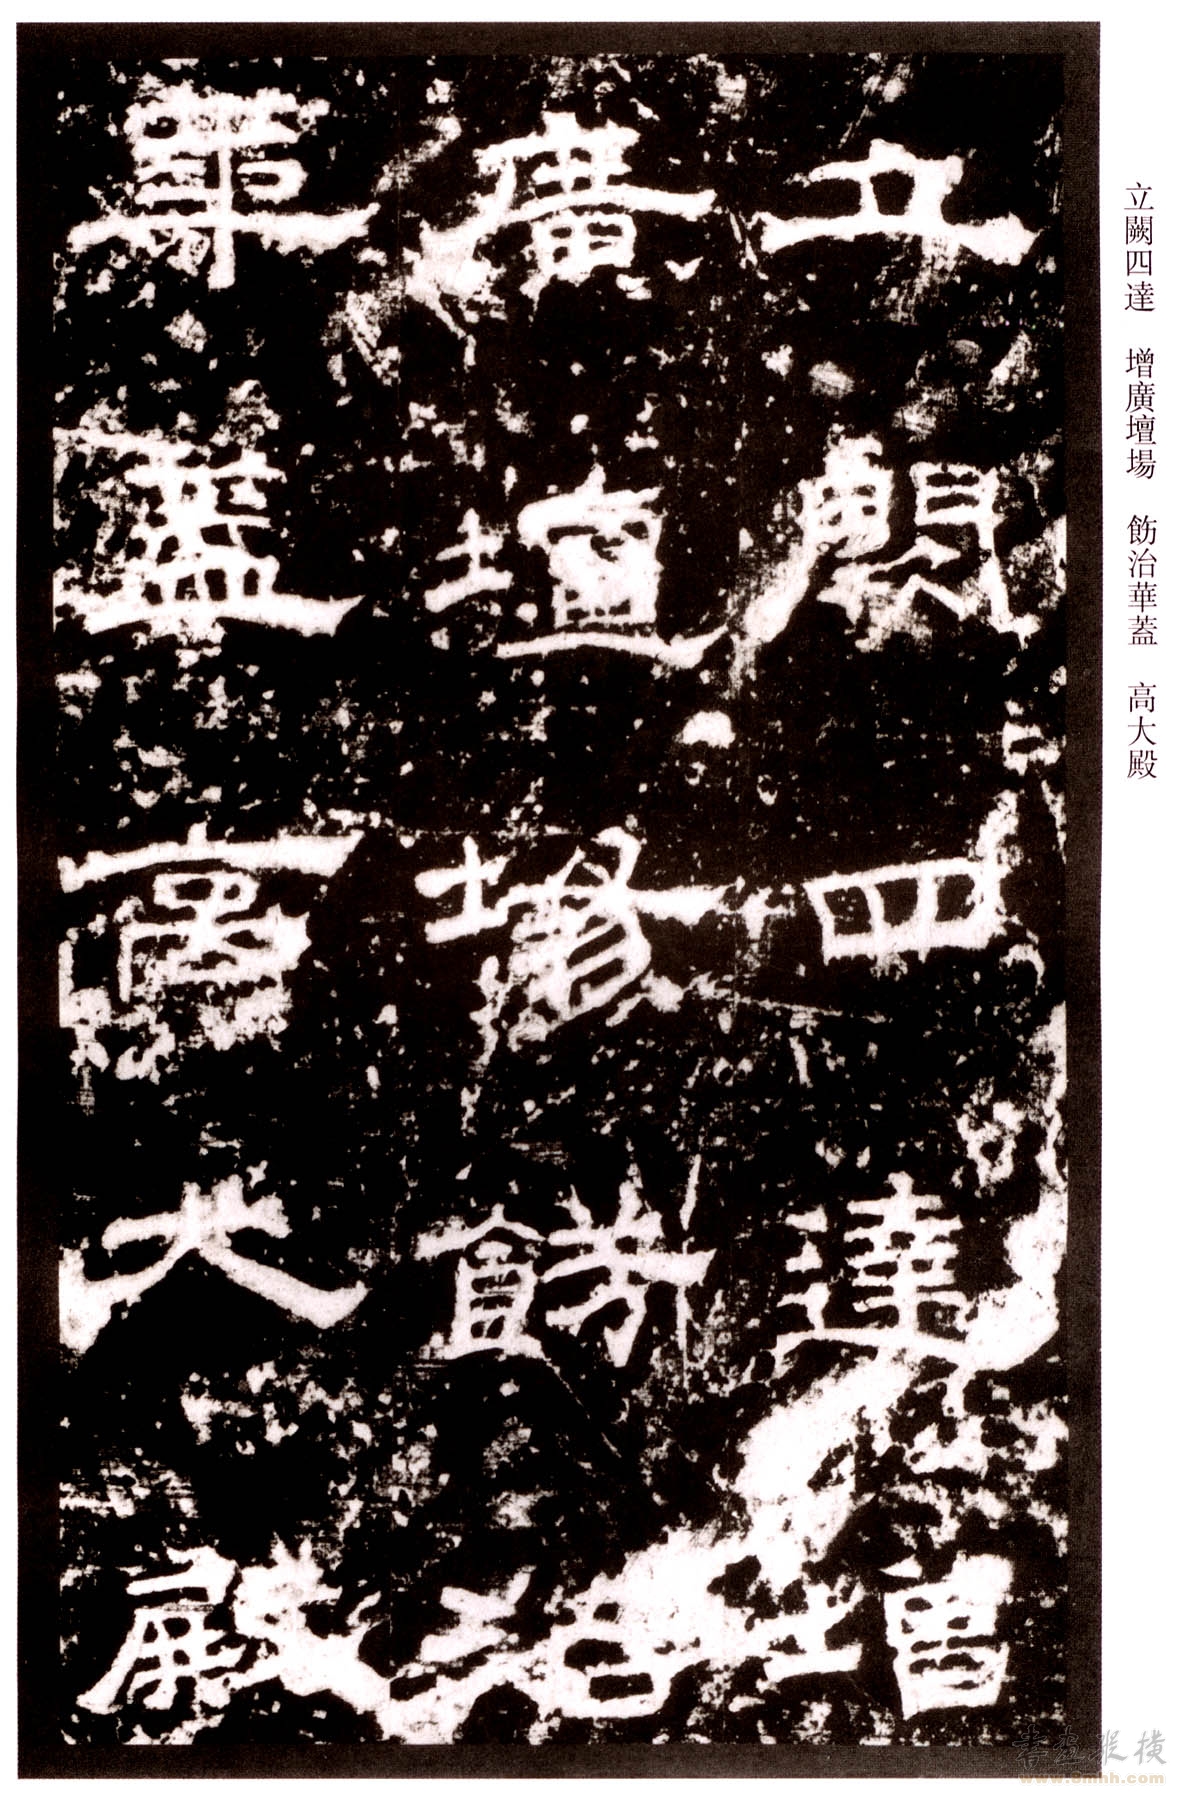 立闕四達　增廣壇場　飭治華蓋　高大殿
立闕四達增
廣壇場飭治
華蓋高大殿
書畫縱橫
www.8mhh.com